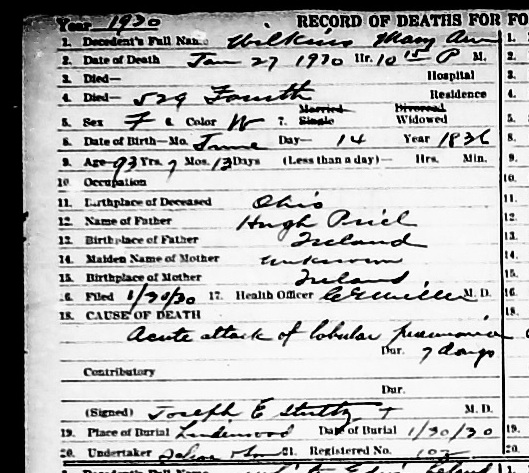 Year 1930 RECORD OF DEATHS FOR FO
1. Decedent's Full Name Wilkins Mary Ann 1.
2. Date of Death Jan 27 1930 Hr. 10 15 P M. 2.
3. Died— Hospital 3.
4. Died— 529 Fourth Residence 4.
5. Sex F & Color W 7. Married Single Divorced Widowed 5.
8. Date of Birth—Mo. June Day— 14 Year 1836 8.
9. Age 93 Yrs. 7 Mos. 13 Days (Less than a day)— Hrs. Min. 9.
10. Occupation 10.
11. Birthplace of Deceased Ohio 11.
12. Name of Father Hugh 12.
13. Birthplace of Father Ireland 13.
14. Maiden Name of Mother unknown 14.
15. Birthplace of Mother Ireland 15.
16. Filed 1/30/30 17. Health Officer M. D. 16.
18. CAUSE OF DEATH 18.
Acute attack of lobular pneumonia
Dur. 7 days
Contributory
Dur.
(Signed) Joseph E M. D.
19. Place of Burial Lindenwood Date of Burial 1/30/30 19.
20. Undertaker & Son 21. Registered No. 20.